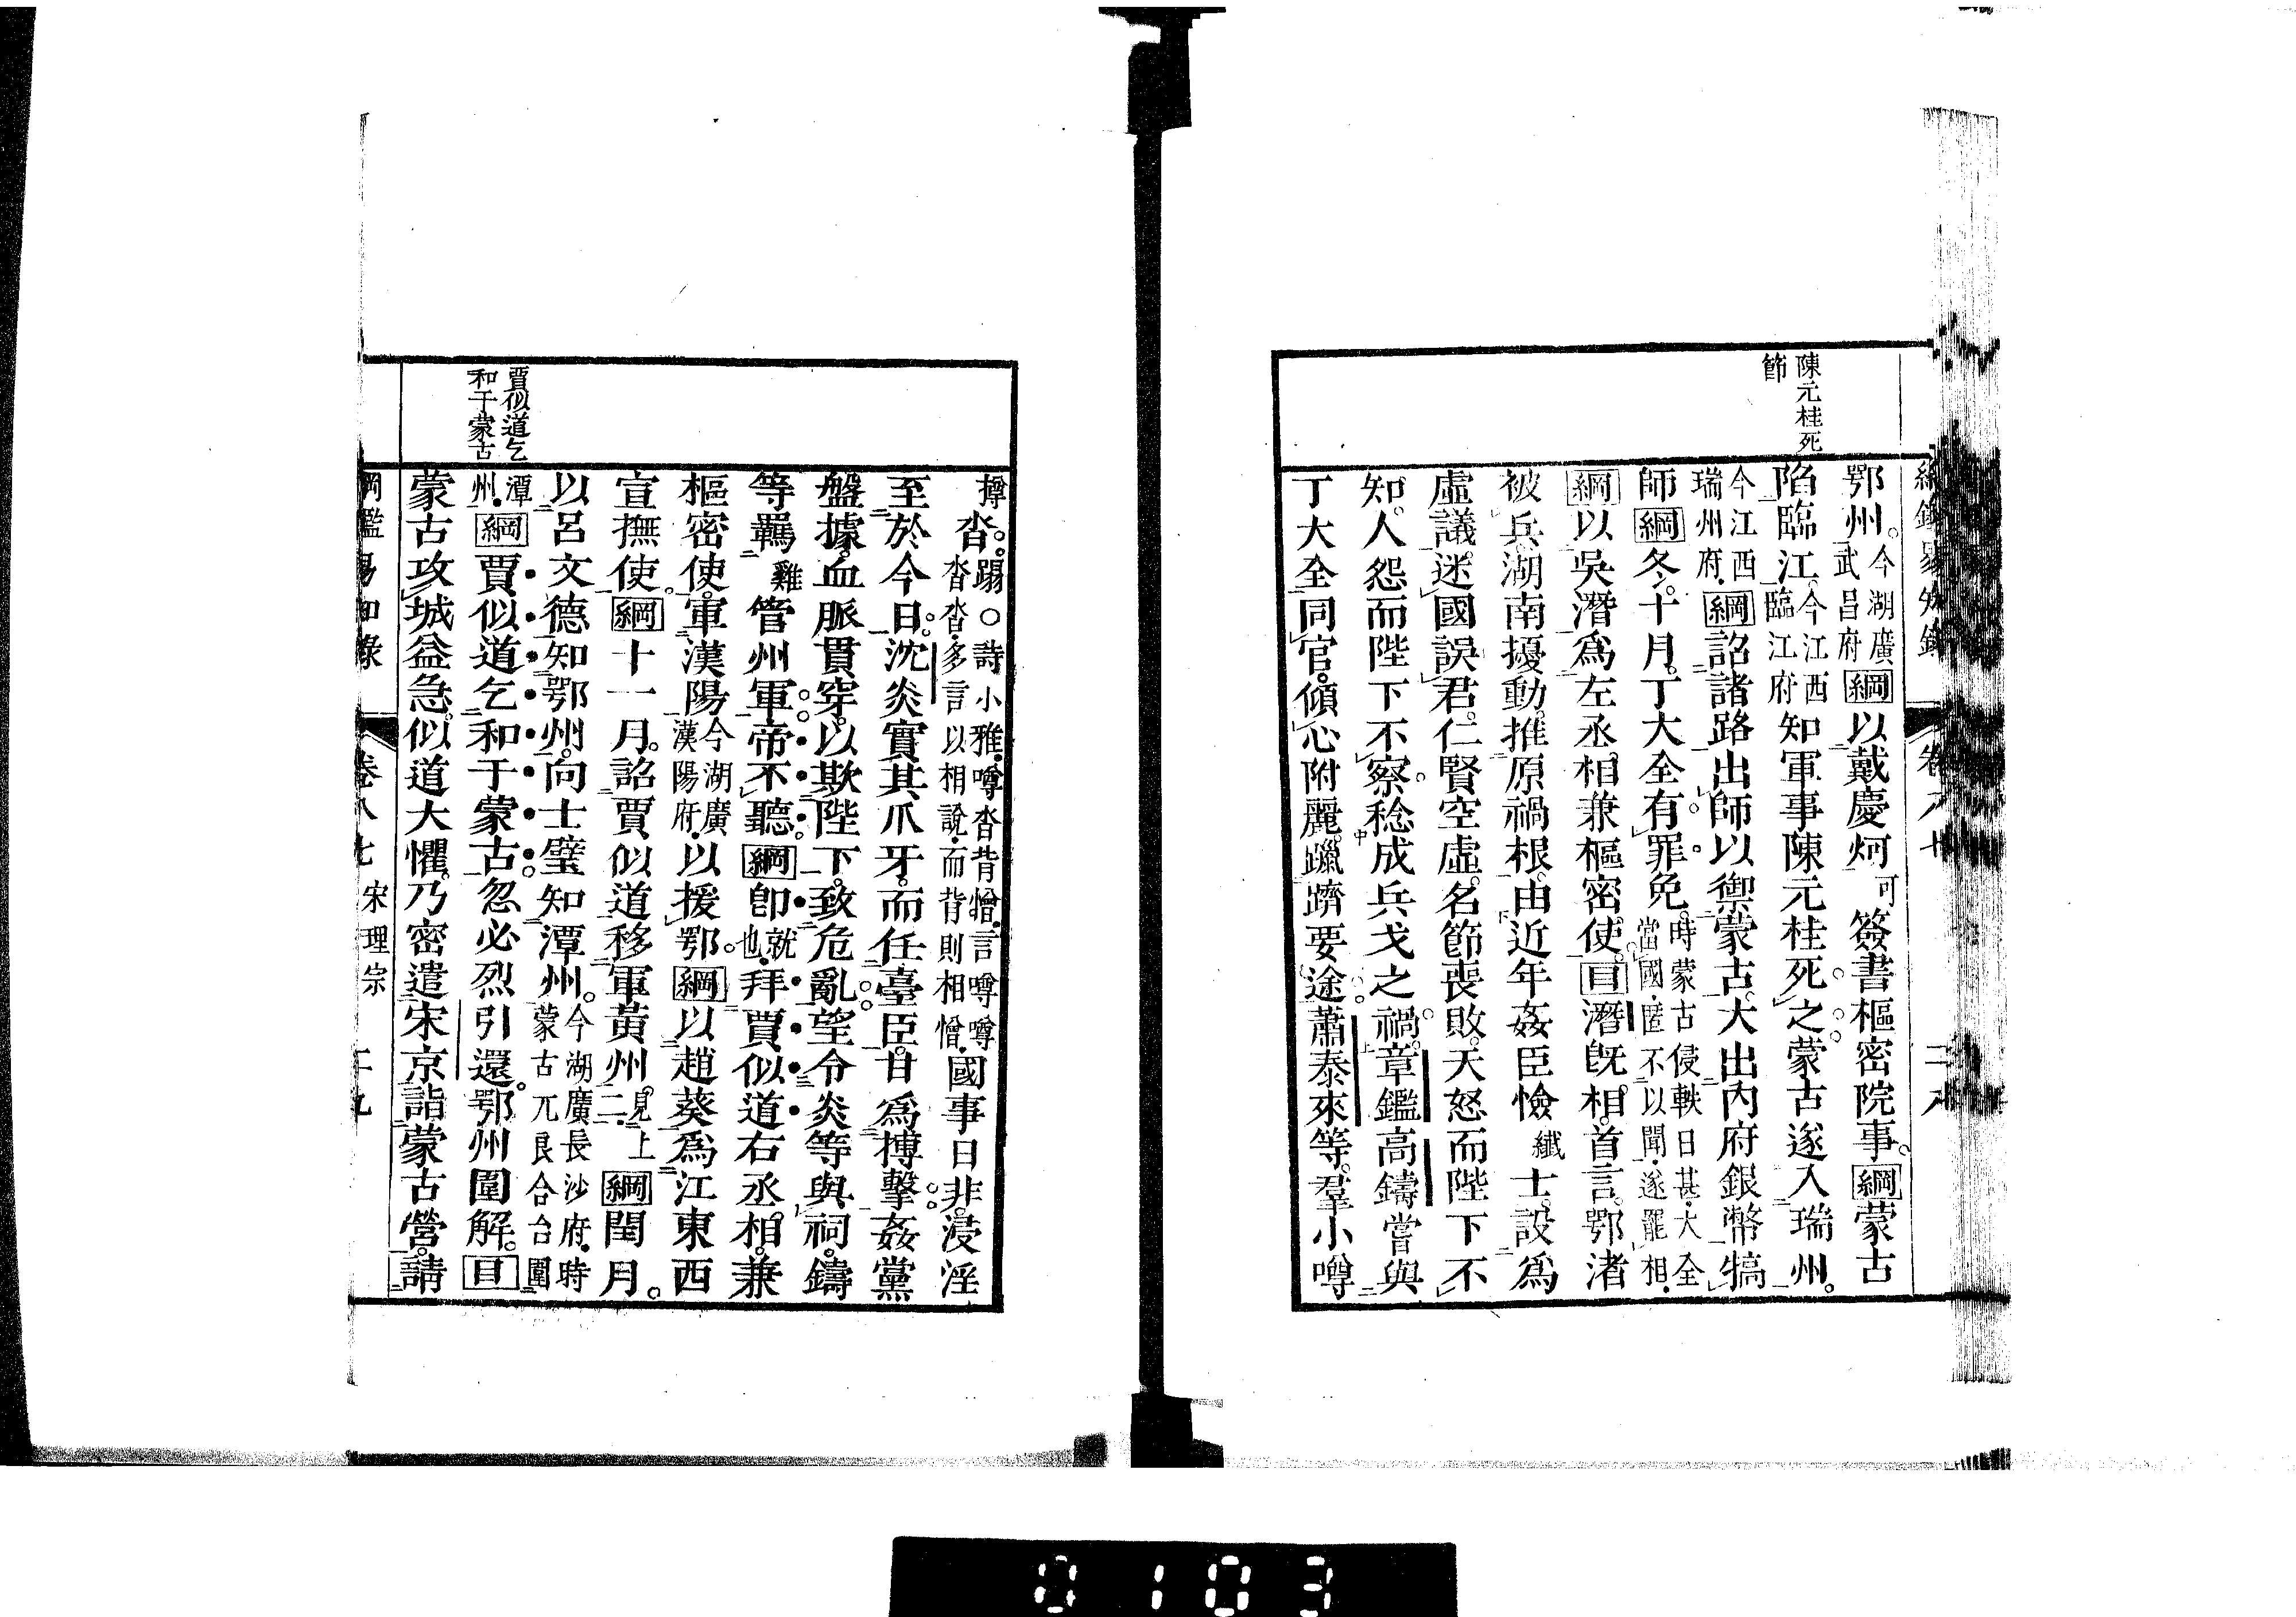 陳元桂死
節
鄂州。今湖廣武昌府綱以戴慶炣可簽書樞密院事。綱蒙古
陷臨江。今江西臨江府知軍事陳元桂死之。蒙古遂入瑞州。
今江西瑞州府.綱詔諸路出師以禦蒙古。大出內府銀幣犒
師綱冬。十月。丁大全有罪免。時蒙古侵軼日甚.大全當國.匿不以聞.遂罷相.
綱以吳潛爲左丞相兼樞密使。目潛旣相。首言。鄂渚
被兵。湖南擾動。推原禍根。由近年姦臣憸纖士。設爲
虛議。迷國誤君。仁賢空虛。名節喪敗。天怒而陛下不
知。人怨而陛下不察。稔成兵戈之禍。章鑑高鑄嘗與
丁大全同官。傾心附麗。躐躋要途。蕭泰來等。羣小噂
賈似道乞
和于蒙古
撙沓。蹋○詩小雅.噂沓背憎.言噂噂沓沓.多言以相說.而背則相憎.國事日非。浸淫
至於今日。沈炎實其爪牙。而任臺臣。甘爲搏擊。姦黨
盤據。血脈貫穿。以欺陛下。致危亂。望令炎等與祠。鑄
等羈雞管州軍。帝不聽。綱卽就也.拜賈似道右丞相。兼
樞密使。軍漢陽今湖廣漢陽府.以援鄂。綱以趙葵爲江東西
宣撫使。綱十一月。詔賈似道移軍黃州。見上二.綱閏月。
以呂文德知鄂州。向士璧知潭州。今湖廣長沙府.時蒙古兀良合台圍
潭州.綱賈似道乞和于蒙古忽必烈引還。鄂州圍解。目
蒙古攻城益急。似道大懼。乃密遣宋京詣蒙古營。請
綱鑑易知錄 卷八七 宋理宗